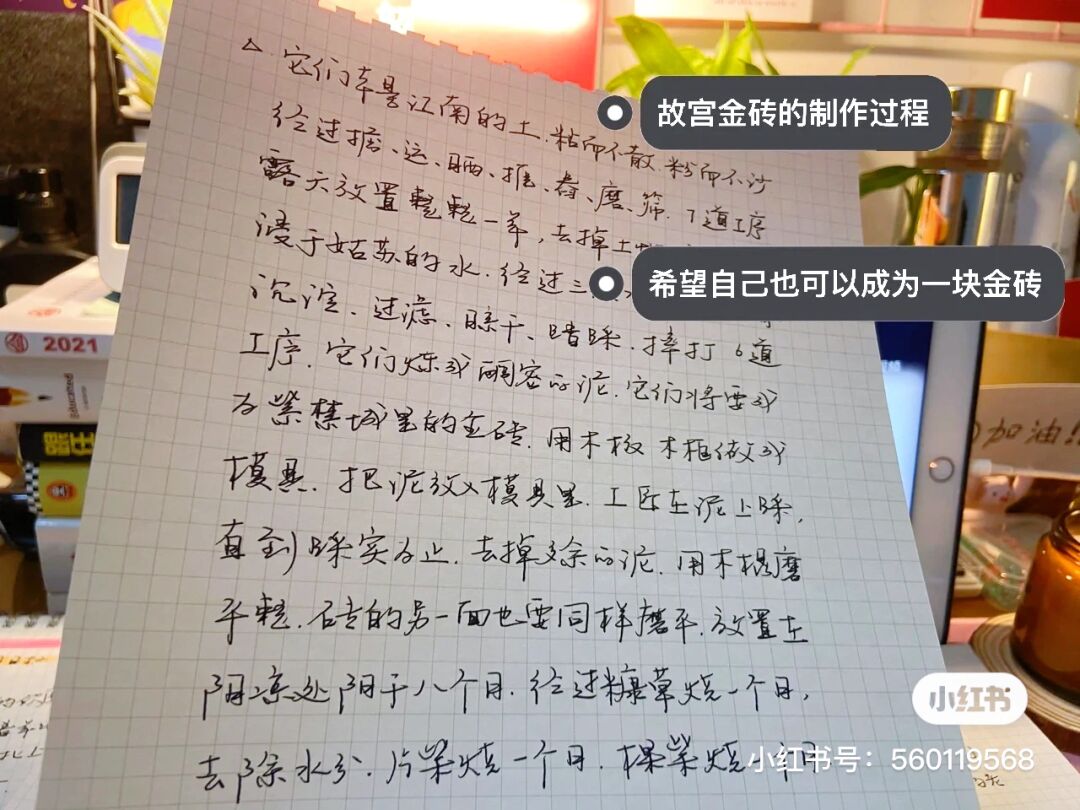 △.它们本是江南的土.粘而不散.粉而不沙
经过掘、运、晒、推、舂、磨、筛.7道工序
露天放置整整一年,去掉土
浸于姑苏的水.经过三
沉淀、过滤、晾干、踏踩.摔打6道
工序.它们炼成稠密的泥.它们将要成
为紫禁城里的金砖.用木板 木框做成
模具.把泥放入模具里.工匠在泥上踩,
直到踩实为止.去掉多余的泥.用木棍磨
平整.砖的另一面也要同样磨平.放置在
阴凉处阴干八个月.经过糠草烧一个月,
去除水分.片柴烧一个月.棵柴烧一个月
故宫金砖的制作过程
希望自己也可以成为一块金砖
2021
加油!!
小红书
小红书号:560119568